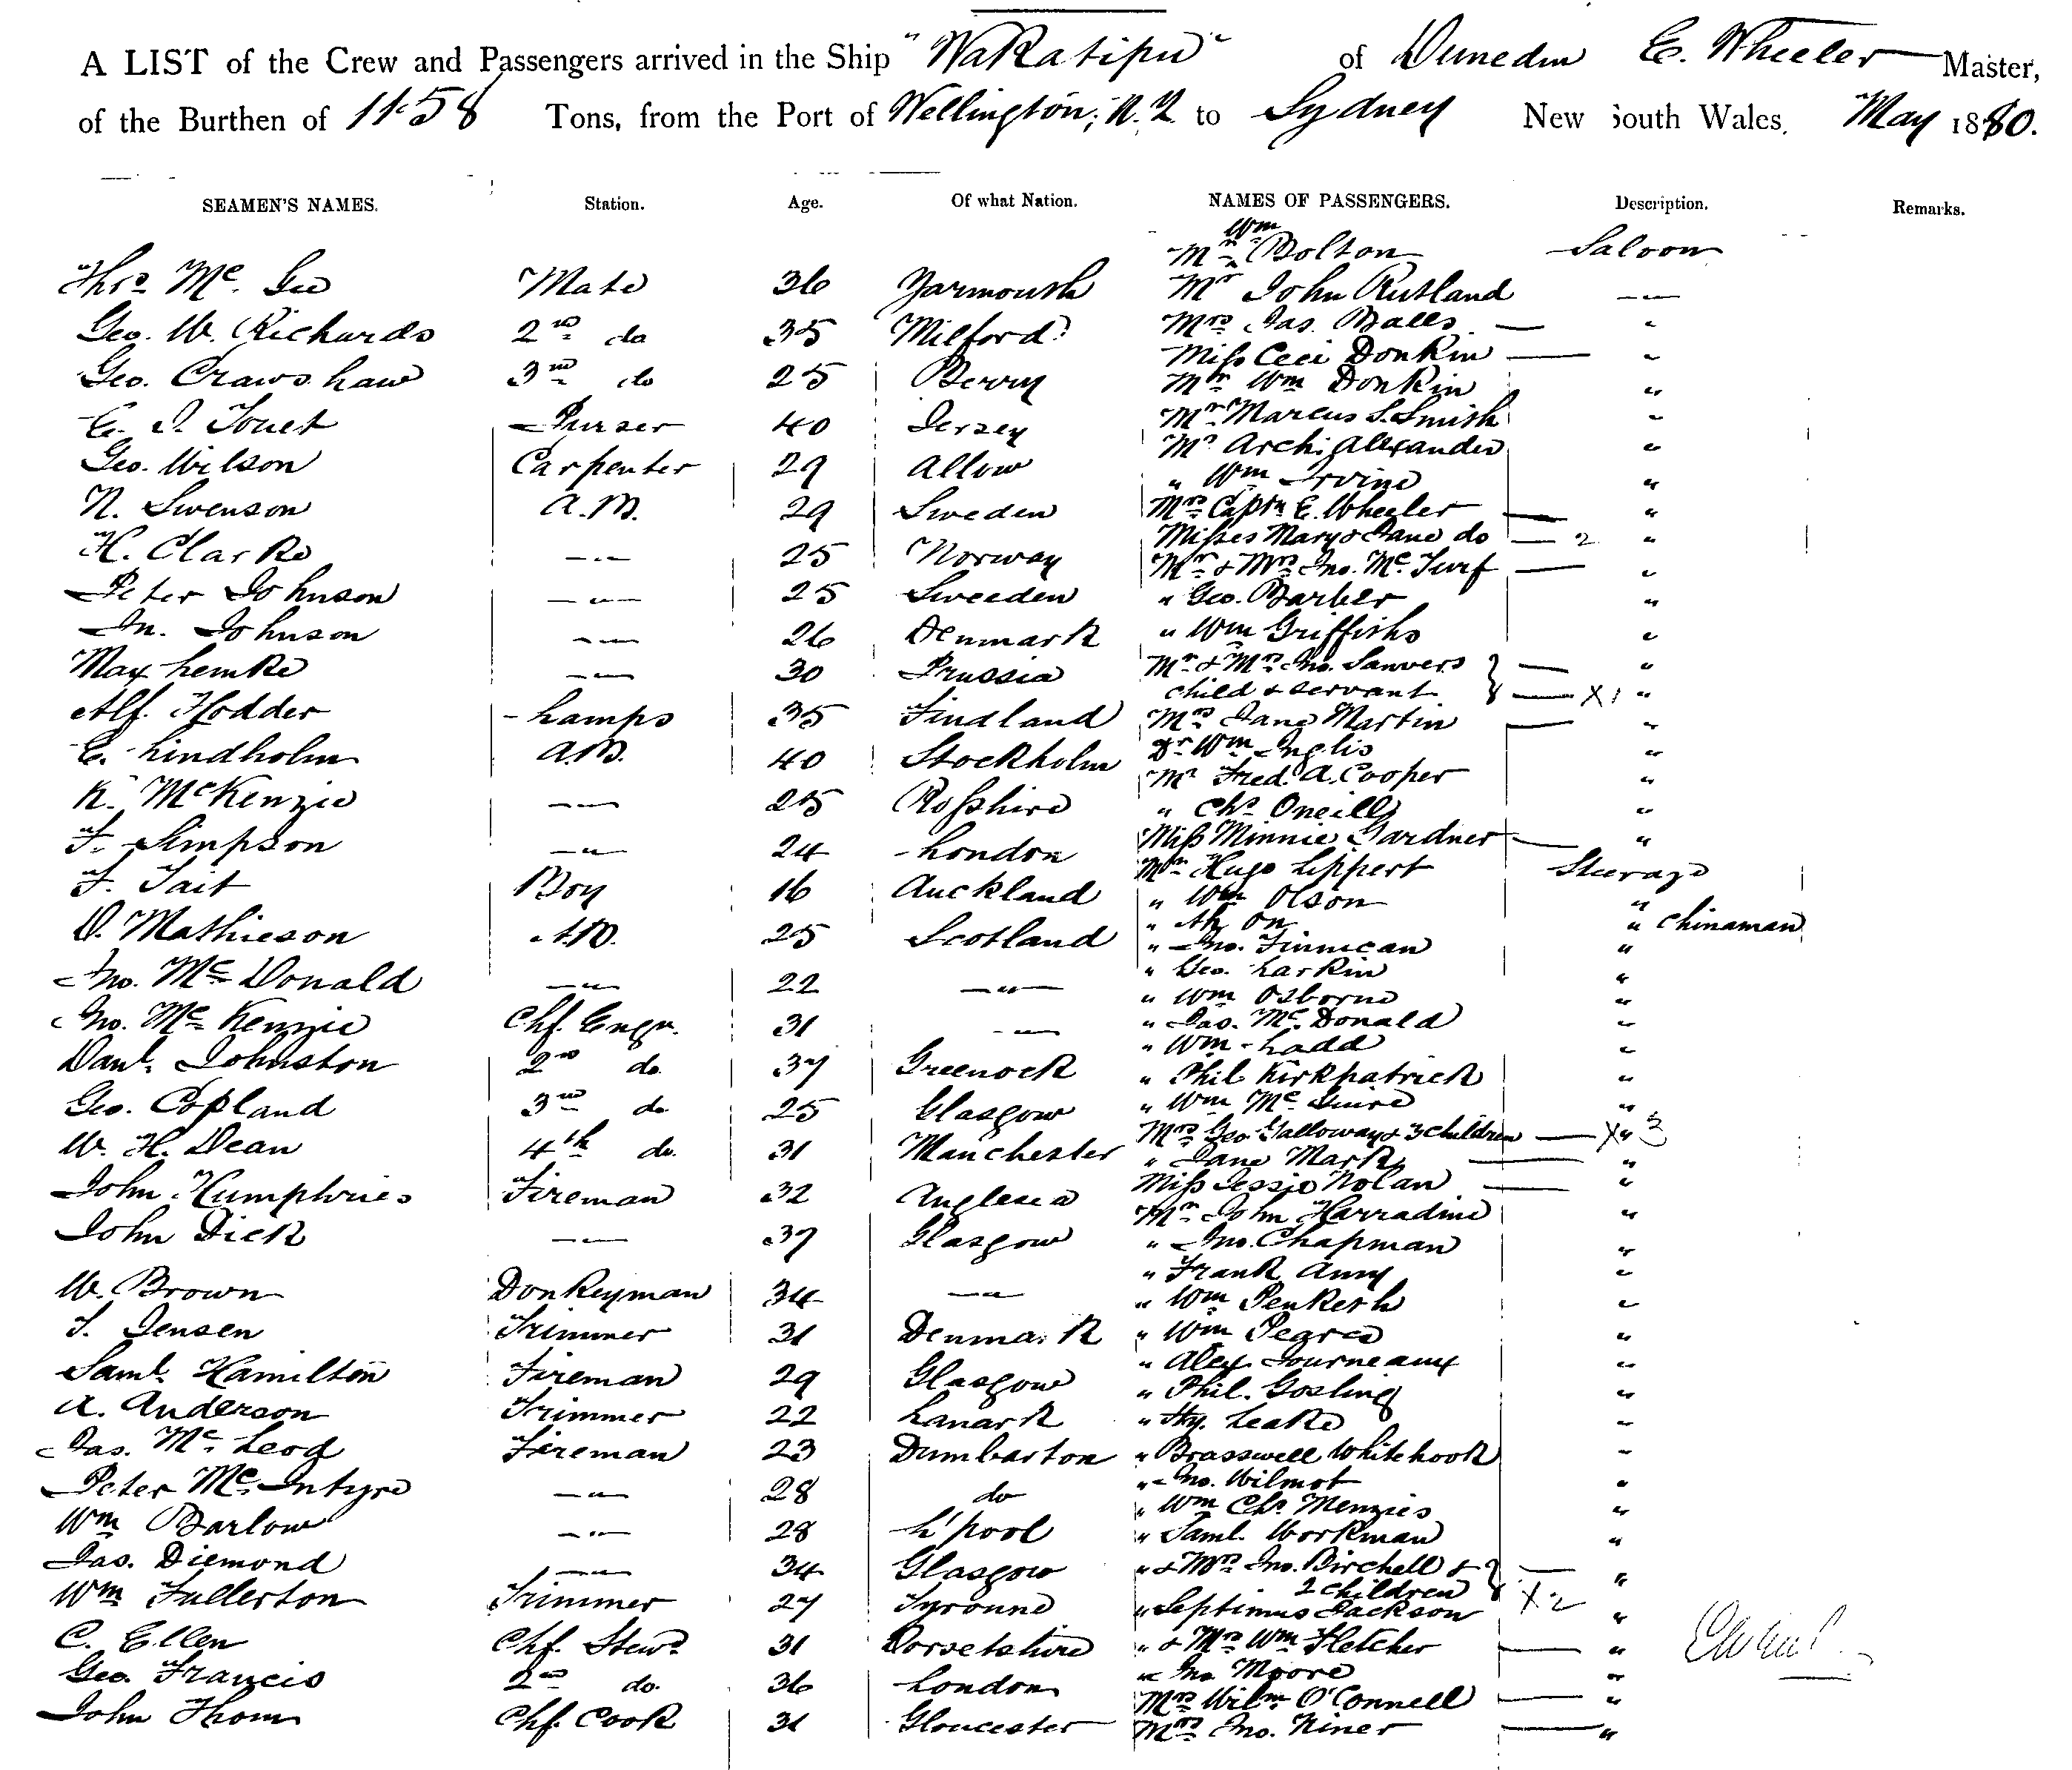 A LIST of the Crew and Passengers arrived in the Ship "Wakatipu" of Dunedin E. Wheeler Master,
of the Burthen of 1158 Tons, from the Port of Wellington, N.Z. to Sydney New South Wales, May 1880.
SEAMEN'S NAMES. Station. Age. Of what Nation. NAMES OF PASSENGERS. Description. Remarks.
Mr Wm Bolton Saloon
Thos. Mc. Gee Mate 36 Yarmouth Mr John Rutland -"-
Geo. W. Richards 2nd do 35 Milford Mrs Jas. Balls "
Miss Ceci Donkin "
Geo. Crawshaw 3rd do 25 Berry Mr Wm Donkin "
E. J. Touet Purser 40 Jersey Mr Marcus S. Smith "
Mr Archi Alexander "
Geo. Wilson Carpenter 29 Allow " Wm Irvine "
N. Swenson A.B. 29 Sweden Mrs Captn E. Wheeler "
Misses Mary & Jane do 2 "
H. Clarke -"- 25 Norway Mr & Mrs Jno. Mc. Turf "
Peter Johnson -"- 25 Sweeden " Geo. Barber "
Jn. Johnson -"- 26 Denmark " Wm Griffiths "
Max Lemke -"- 30 Prussia Mr & Mrs Jno. Sanvers "
child & servant X1 "
Alf. Hodder Lamps 35 Findland Mrs Jane Martin "
E. Lindholm A.B. 40 Stockholm Dr Wm Inglis "
Mr Fred. A. Cooper "
K. McKenzie -"- 25 Rosshire " Chs. Oneill "
F. Simpson -"- 24 London Miss Minnie Gardner "
Mr Hugo Lippert Steerage
F. Tait Boy 16 Auckland " Wm Olson "
" Ah On " Chinaman
D. Mathieson A.B. 25 Scotland " Jno. Finnican "
" Geo. Larkin "
Jno. Mc Donald -"- 22 -"- " Wm Osborne "
Jno. Mc Kenzie Chf. Engr. 31 -"- " Jas. Mc. Donald "
" Wm Ladd "
Danl. Johnston 2nd do. 37 Greenock " Phil Kirkpatrick "
Geo. Copland 3rd do. 25 Glasgow " Wm Mc Guire "
Mrs Geo Galloway & 3 children X" 3
W. H. Dean 4th do. 31 Manchester " Jane Mark "
John Humphries Fireman 32 Anglesea Miss Jessie Nolan "
Mr John Harradine "
John Dick -"- 37 Glasgow " Jno. Chapman "
" Frank Anny "
W. Brown Donkeyman 34 -"- " Wm Penketh "
T. Jensen Trimmer 31 Denmark " Wm Pearce "
" Alex. Journeaux "
Saml. Hamilton Fireman 29 Glasgow " Phil. Gosling "
A. Anderson Trimmer 22 Lanark " Hy. Leake "
Jas. Mc. Leod Fireman 23 Dumbarton " Brasswell Whitehook "
Peter Mc. Intyre -"- 28 do " Jno. Wilmot "
" Wm Chs. Menzies "
Wm Barlow -"- 28 L'pool " Saml. Workman "
Jas. Diemond -"- 34 Glasgow " & Mrs Jno. Birchell & "
2 children X2
Wm Fullerton Trimmer 27 Tyronne " Septimus Jackson "
C. Ellen Chf. Stewd 31 Dorsetshire " & Mrs Wm Fletcher "
Geo. Francis 2nd do. 36 London " Jno Moore "
Mrs Wilm O'Connell "
John Thom Chf. Cook 31 Gloucester Mrs Jno. Niner "